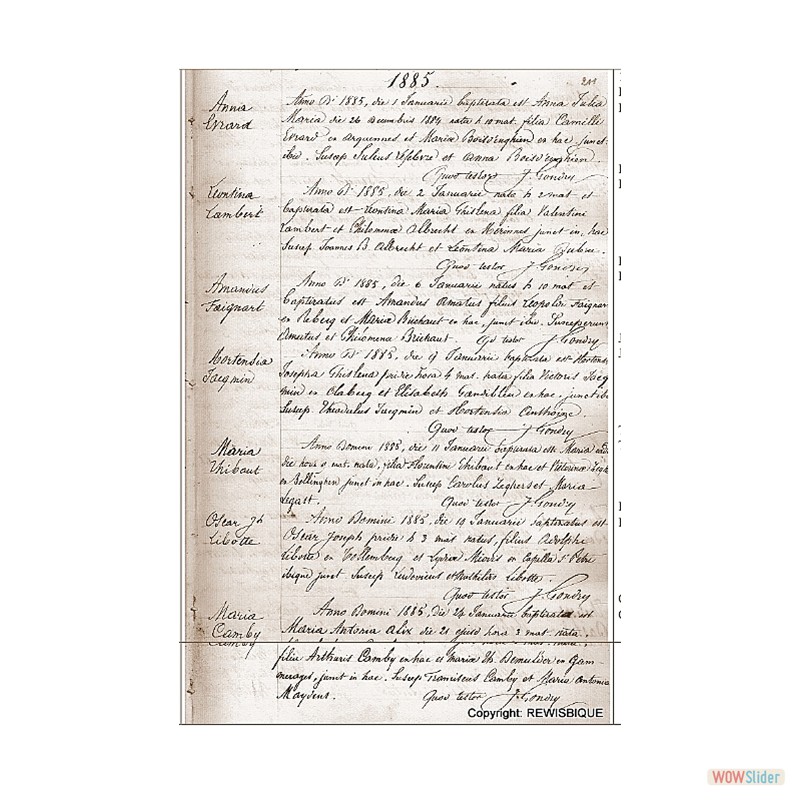 1885.
211
Anna
Evrard
Anno Dni 1885, die 1 Januarii baptizata est Anna Julia
Maria die 26 decembris 1884 nata h 10 mat. filia Camille
Evrard ex Arquennes et Maria Boisd'enghien ex hac junct.
ibi. Suscep. Julius Lefebvre et Anna Boisd'enghien.
Quod testor J. Gondry
Leontina
Lambert
Anno Dni 1885, die 2 Januarii nata h 2 mat et
baptizata est Leontina Maria Ghislena filia Valentini
Lambert et Philomena Albrecht ex Herinnes junct in hac
Suscep. Joannes B. Albrecht et Leontina Maria
Quod testor J. Gondry
Amandus
Faignart
Anno Dni 1885, die 6 Januarii natus h 10 mat. et
baptizatus est Amandus Amatus filius Leopoldi Faignart
ex Rebecq et Maria Brichaut ex hac, junct ibi. Susceperunt
Amatus et Philomena Brichaut. Qd testor J. Gondry
Hortensia
Jacqmin
Anno Dni 1885, die 9 Januarii baptizata est Hortensia
Josepha Ghislena pridie hora 4 mat. nata filia Victoris Jacq
min ex Clabecq et Elisabeth ex hac, junct ibi
Suscep. Theodulus Jacqmin et Hortensia
Quod testor J. Gondry
Maria
Thibaut
Anno Domini 1885, die 11 Januarii baptizata est Maria
die hora 9 mat. nata, filia Florentini Thibaut ex hac et
ex Bellinghen junct in hac. Suscep Carolus Zeghers et Maria
Legast. Quod testor J. Gondry
Oscar Jh
Libotte
Anno Domini 1885, die 19 Januarii baptizatus est
Oscar Joseph pridie h 3 mat natus, filius Adolphi
Libotte ex Tollembeeg et Lydia ex Capella St
ibique junct Suscep Ludovicus et Mathildis Libotte.
Quod testor J. Gondry
Maria
Camby
Anno Domini 1885, die 24 Januarii baptizata est
Maria Antonia Alix die 21 ejusd hora 2 mat. nata.
filia Arthuris Camby ex hac et Maria Th. Demulder ex Gam-
merages, junct in hac. Suscep Franciscus Camby et Maria Antonia
Quod testor J. Gondry
Copyright: REWISBIQUE
WOWSlider